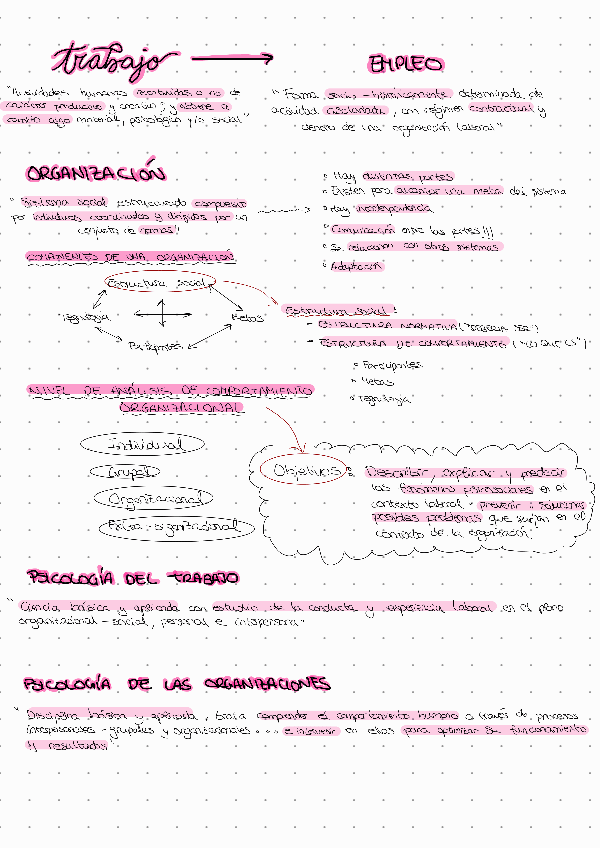 trabajo → EMPLEO
"Actividades humanas retribuidas o no de
carácter productivo y creativo; y obtiene a
cambio algo material, psicológico y/o social"
"Forma socio-históricamente determinada de
actividad asalariada, con régimen contractual y
dentro de una organización laboral"
ORGANIZACIÓN
" Sistema social estructurado compuesto
por individuos coordinados y dirigidos por un
conjunto de normas!
Hay distintas partes
Existen para alcanzar una meta del sistema
Hay interdependencia
Comunicación entre las partes!!!
Se relacionan con otros sistemas
Adaptación
COMPONENTES DE UNA ORGANIZACIÓN
Estructura social
Tecnología
Metas
Participantes
Estructura social:
- ESTRUCTURA NORMATIVA ("DEBERÍA SER")
- ESTRUCTURA DE COMPORTAMIENTO ("LO QUE ES")
Participantes
Metas
Tecnología
NIVEL DE ANÁLISIS DE COMPORTAMIENTO
ORGANIZACIONAL
Individual
Grupal
Organizacional
Extra-organizacional
Objetivos: Describir, explicar y predecir
los fenómenos psicosociales en el
contexto laboral - prevenir o solucionar
posibles problemas que surjan en el
contexto de la organización
PSICOLOGÍA DEL TRABAJO
" Ciencia básica y aplicada con estudio de la conducta y experiencia laboral en el plano
organizacional - social, personal e intrapersonal"
PSICOLOGÍA DE LAS ORGANIZACIONES
" Disciplina básica y aplicada, trata comprender el comportamiento humano a través de procesos
intrapersonales - grupales y organizacionales ... e intervenir en ellos para optimizar su funcionamiento
y resultados